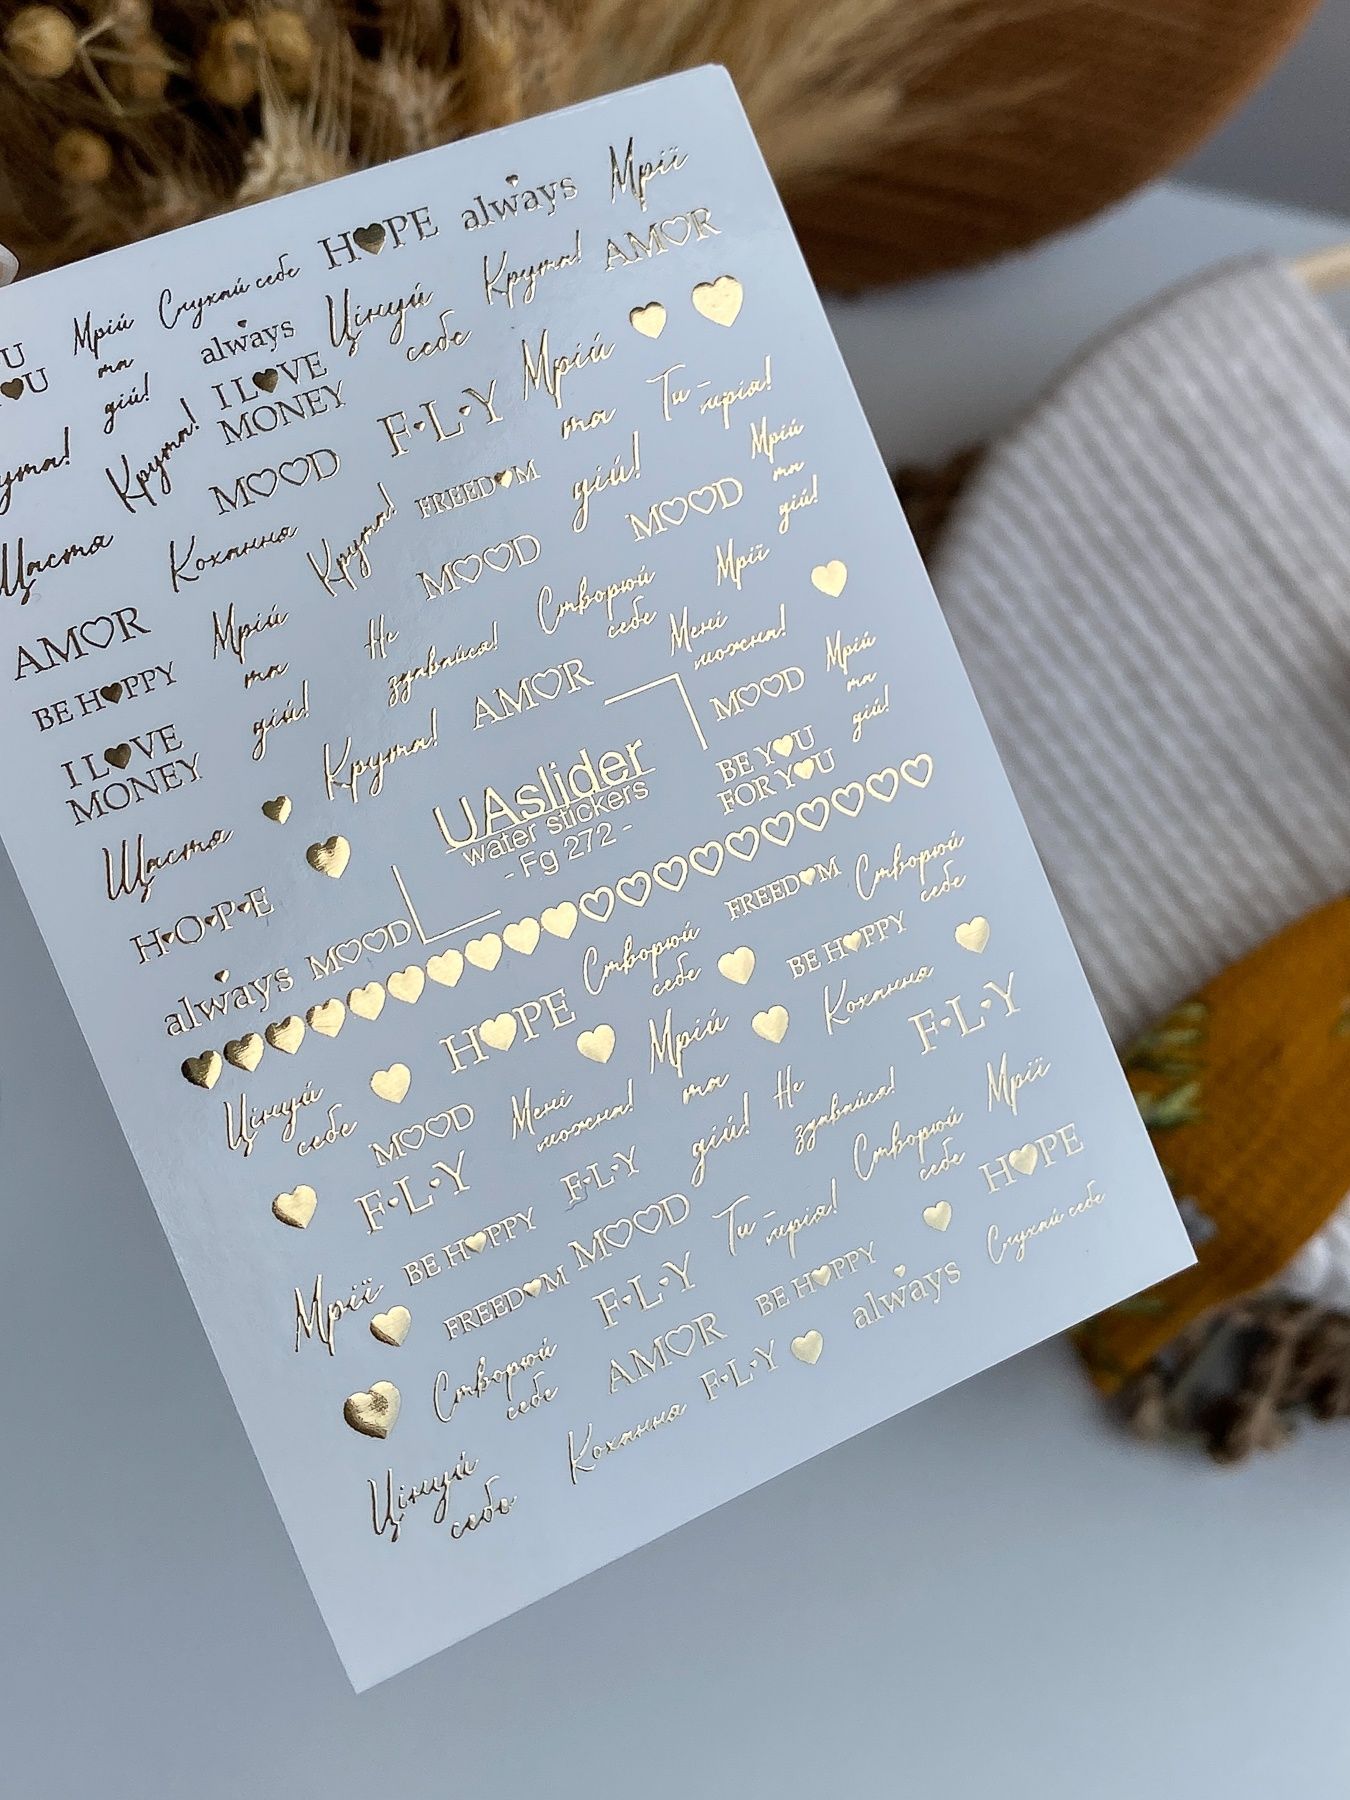 HOPE always Мрії
Мрій та дій! Слухай себе always Цінуй себе Крута! AMOR
I LOVE MONEY
Крута! F·L·Y Мрій та дій! Ти - мрія!
MOOD FREEDOM Мрій та дій!
Щастя Кохання Крута! MOOD MOOD
AMOR Мрій та дій! Не здавайся! Створюй себе Мрії
BE HAPPY Мені можна!
I LOVE MONEY Крута! AMOR MOOD Мрій та дій!
UAslider
water stickers
- Fg 272 -
BE YOU
FOR YOU
Щастя
H·O·P·E
always MOOD
Створюй себе FREEDOM Створюй себе
Цінуй себе HOPE BE HAPPY
MOOD Мені можна! Мрій та дій! Кохання
F·L·Y F·L·Y Не здавайся! F·L·Y
BE HAPPY MOOD Створюй себе Мрії
Мрії FREEDOM F·L·Y Ти - мрія! HOPE
Створюй себе AMOR BE HAPPY Слухай себе
F·L·Y always
Цінуй себе Кохання